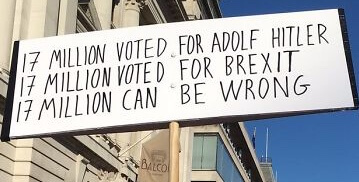 17 MILLION VOTED FOR ADOLF HITLER
17 MILLION VOTED FOR BREXIT
17 MILLION CAN BE WRONG
BALCON